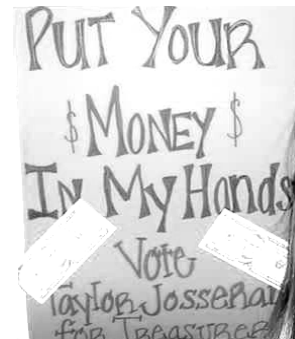 PUT YOUR
$ MONEY $
IN MY Hands
Vote
Taylor
for TREASURER